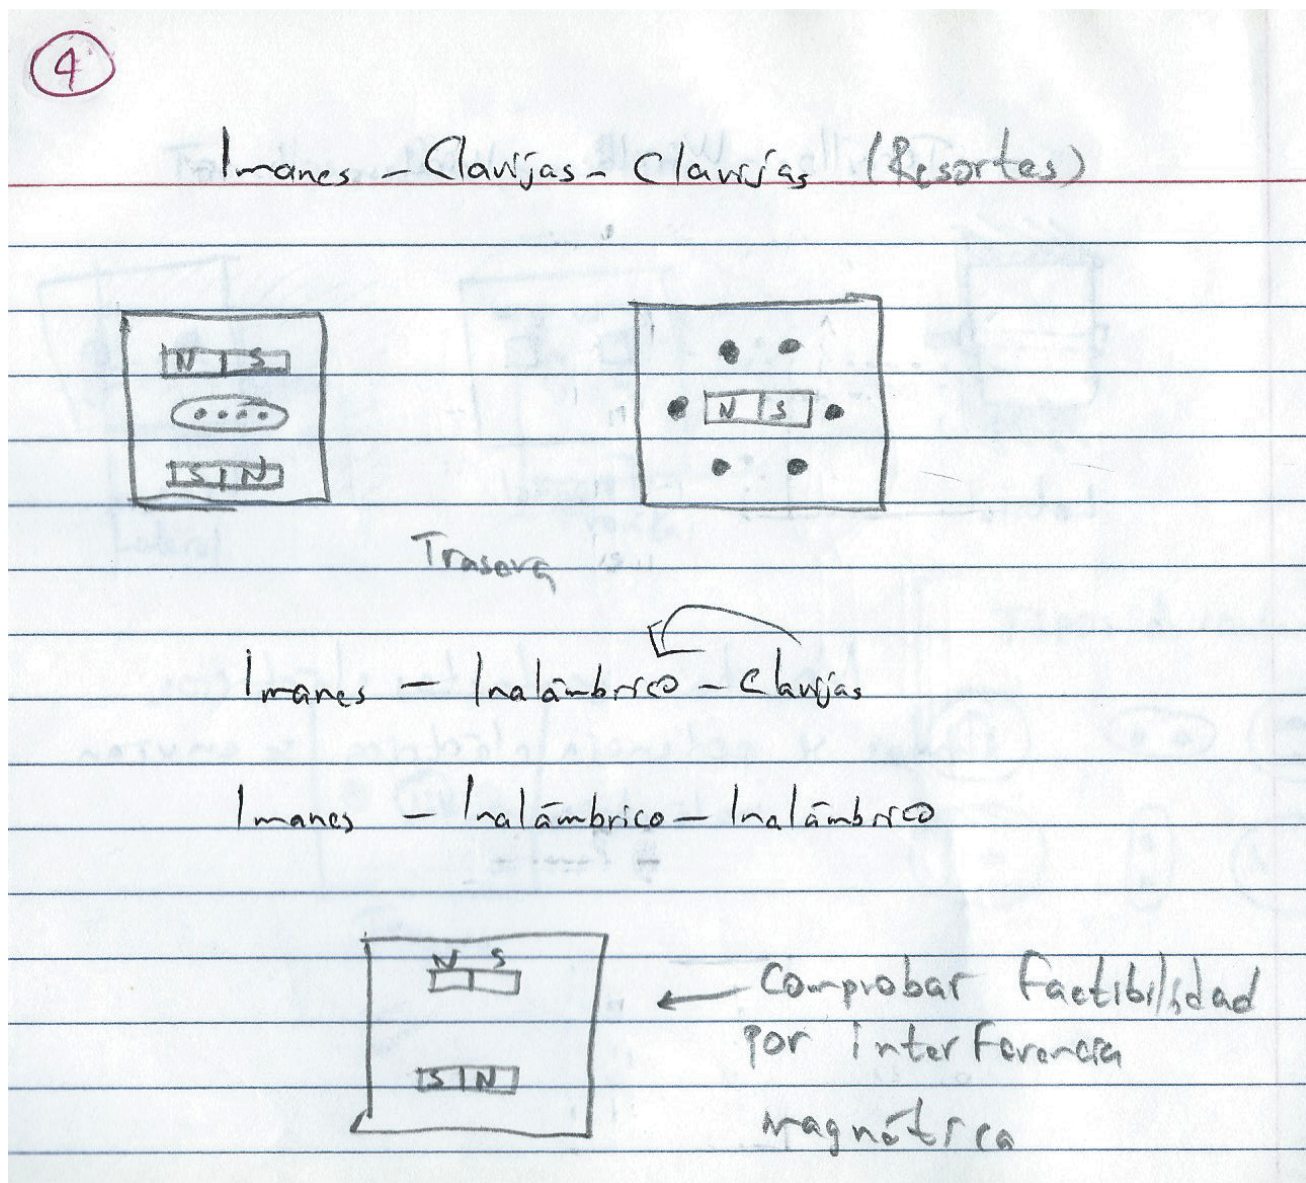 4
Imanes - Clavijas - Clavijas (Resortes)
N S
N S
S N
Trasera
Imanes - Inalámbrico - Clavijas
Imanes - Inalámbrico - Inalámbrico
N S
Comprobar factibilidad
por interferencia
S N
magnética